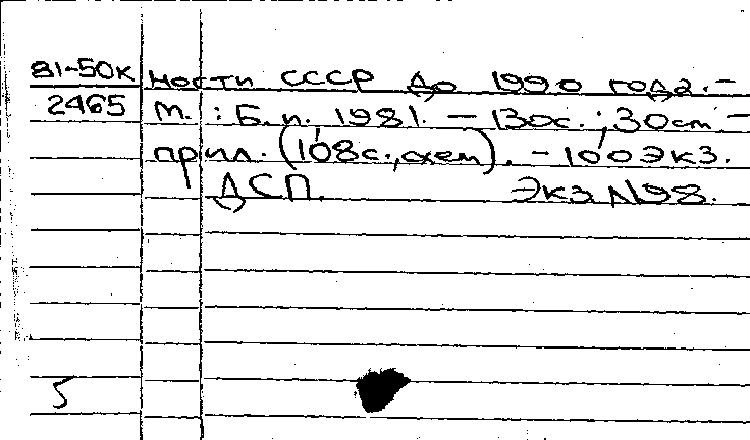 81-50к ности СССР до 1990 года.-
2465 М.: Б.и., 1981. - 130с.; 30см. -
прил. (108с., схем). - 100 экз.
ДСП. Экз. N98.
5